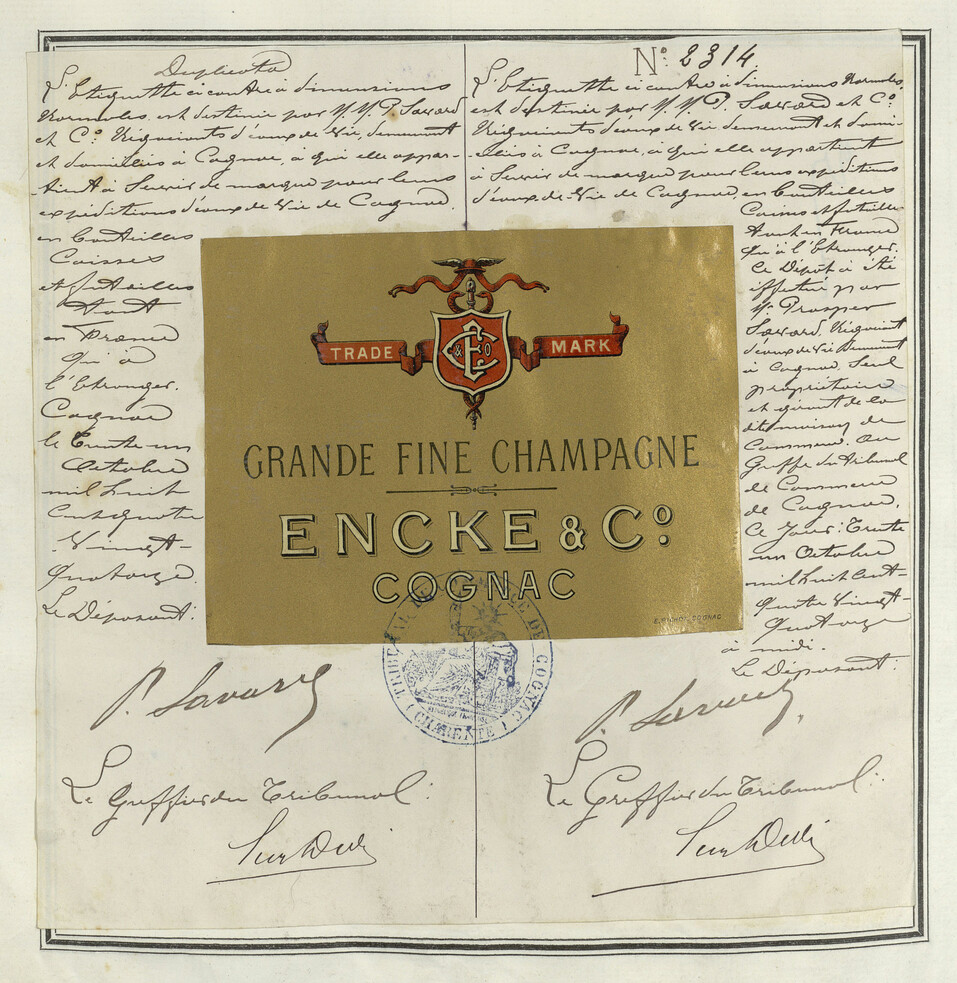 Duplicata
L'Etiquette ci contre à dimensions
Normales, est destinée par M.M. P. Savard
et Co. Négociants d'eaux de Vie, demeurant
et domiciliés à Cognac, à qui elle appar-
-tient à Servir de marque pour leurs
expéditions d'eaux de Vie de Cognac.
en bouteilles
Caisses
et futailles
tant
en France
qu'à
l'Etranger.
Cognac
le trente un
Octobre
mil huit
cent quatre
Vingt-
quatorze.
Le Déposant:
P. Savard
Le Greffier du Tribunal:
No. 2314
L'Etiquette ci contre à dimensions Normales,
est destinée par M.M. P. Savard et Co.
Négociants d'eaux de Vie demeurant et domi-
-ciliés à Cognac, à qui elle appartient
à Servir de marque pour leurs expéditions
d'eaux-de-Vie de Cognac, en bouteilles
Caisses et futailles
tant en France
qu'à l'Etranger.
Ce Dépôt à été
effectué par
Mr. Prosper
Savard, Négociant
d'eaux de Vie Demeurant
à Cognac, Seul
propriétaire
et gérant de la
dite maison de
Commerce. Au
Greffe du Tribunal
de Commerce
de Cognac,
Ce Jour: trente
un Octobre
mil huit cent-
quatre Vingt-
quatorze
à midi.
Le Déposant:
P. Savard
Le Greffier du Tribunal:
TRADE MARK
E & Co
GRANDE FINE CHAMPAGNE
ENCKE & Co.
COGNAC
E. MICHOT, COGNAC
TRIBUNAL DE COMMERCE DE COGNAC
(CHARENTE)